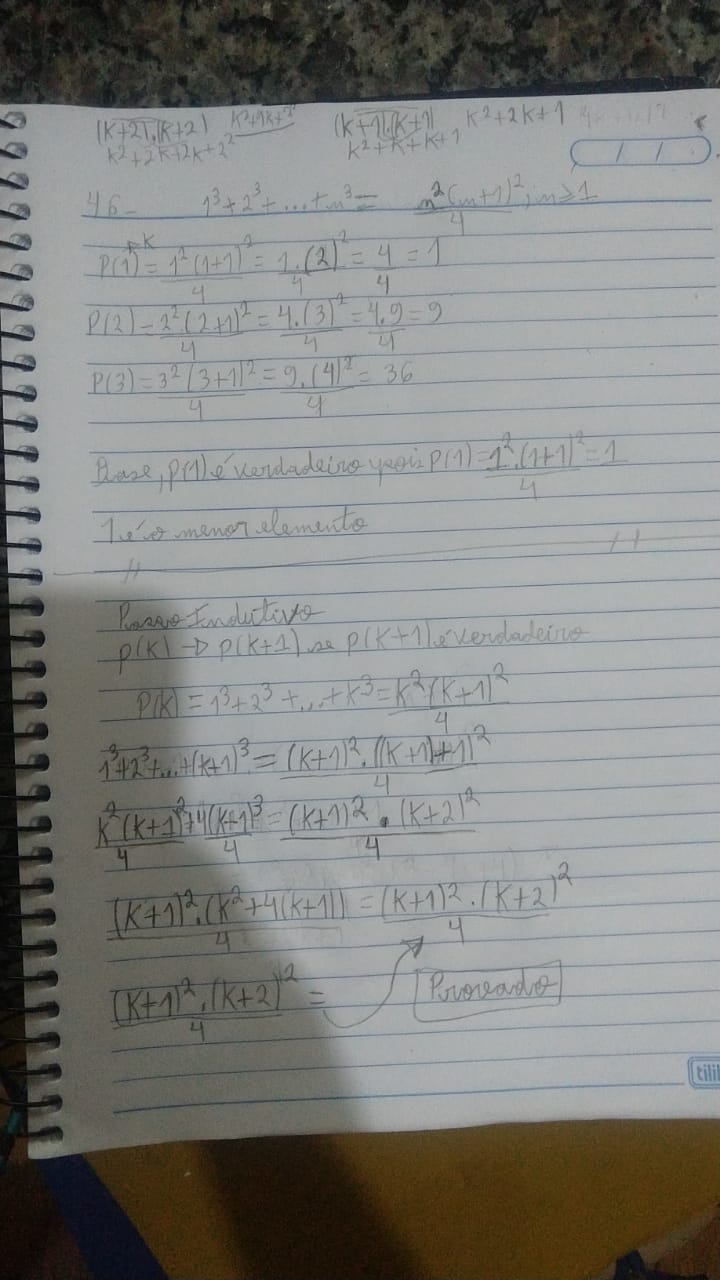 (k+2).(k+2) k²+4k+2² (k+1).(k+1) k²+2k+1
k²+2k+2k+2² k²+k+k+1
/ /
46- 1³+2³+...+n³= n²(n+1)²/4; n≥1
k
P(1)= 1²(1+1)²/4 = 1.(2)²/4 = 4/4 = 1
P(2)= 2².(2+1)²/4 = 4.(3)²/4 = 4.9/4 = 9
P(3)= 3²(3+1)²/4 = 9.(4)²/4 = 36
Base, P(1) é verdadeiro pois P(1)= 1².(1+1)²/4 = 1
1 é o menor elemento
// //
Passo Indutivo
p(k) → p(k+1) se p(k+1) é verdadeiro
P(k) = 1³+2³+...+k³= k²(k+1)²/4
1³+2³+...+(k+1)³ = (k+1)².((k+1)+1)²/4
k²(k+1)²/4 + 4(k+1)³/4 = (k+1)².(k+2)²/4
(k+1)².(k²+4(k+1))/4 = (k+1)².(k+2)²/4
(k+1)².(k+2)²/4 = Provado
tili